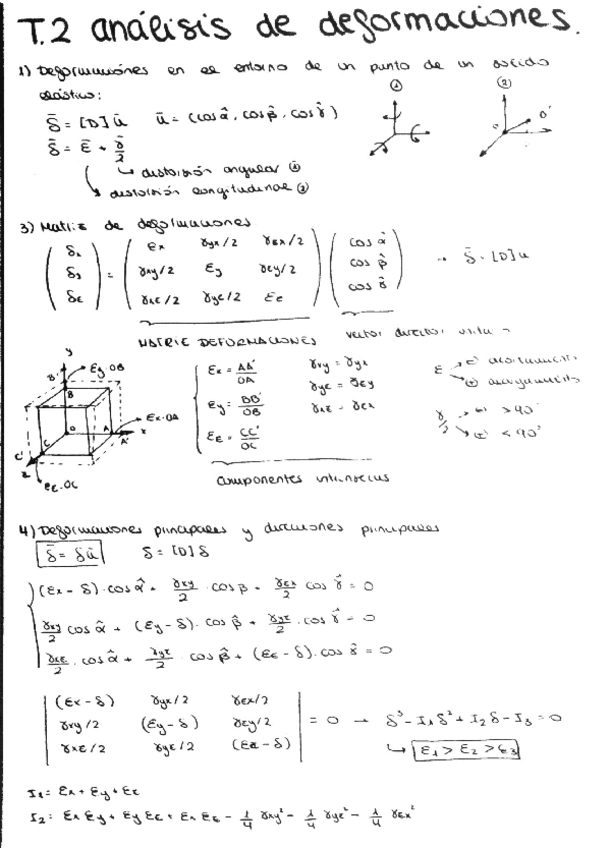 T.2 análisis de deformaciones.
1) Deformaciones en el entorno de un punto de un sólido
elástico:
δ̄ = [D] ū   ū = (cos α̂, cos β̂, cos γ̂)
δ̄ = ε̄ + γ̄/2
↳ distorsión angular ①
↳ distorsión longitudinal ②
① ②
O O'
3) Matriz de deformaciones
(δx) = (εx γyx/2 γzx/2) (cos α̂)
(δy) (γxy/2 εy γzy/2) (cos β̂) → δ̄ = [D] u
(δz) (γxz/2 γyz/2 εz) (cos γ̂)
MATRIZ DEFORMACIONES vector director
y
B' εy·OB
B
O A εx·OA
A' x
C
C'
z εz·OC
εx = AA'/OA   γxy = γyx
εy = BB'/OB   γyz = γzy
εz = CC'/OC   γxz = γzx
ε → (-) acortamiento
(+) alargamiento
γ/2 → (-) > 90°
(+) < 90°
componentes intrínsecas
4) Deformaciones principales y direcciones principales
δ̄ = δū   δ = [D] δ
(εx - δ) · cos α̂ + γxy/2 · cos β + γzx/2 cos γ̂ = 0
γxy/2 cos α̂ + (εy - δ) · cos β̂ + γyz/2 · cos γ̂ = 0
γxz/2 · cos α̂ + γyz/2 · cos β̂ + (εz - δ) · cos γ̂ = 0
|(εx - δ) γyx/2 γzx/2|
|γxy/2 (εy - δ) γzy/2| = 0 → δ³ - I₁δ² + I₂δ - I₃ = 0
|γxz/2 γyz/2 (εz - δ)| ↳ ε₁ > ε₂ > ε₃
I₁ = εx + εy + εz
I₂ = εx εy + εy εz + εx εz - 1/4 γxy² - 1/4 γyz² - 1/4 γzx²